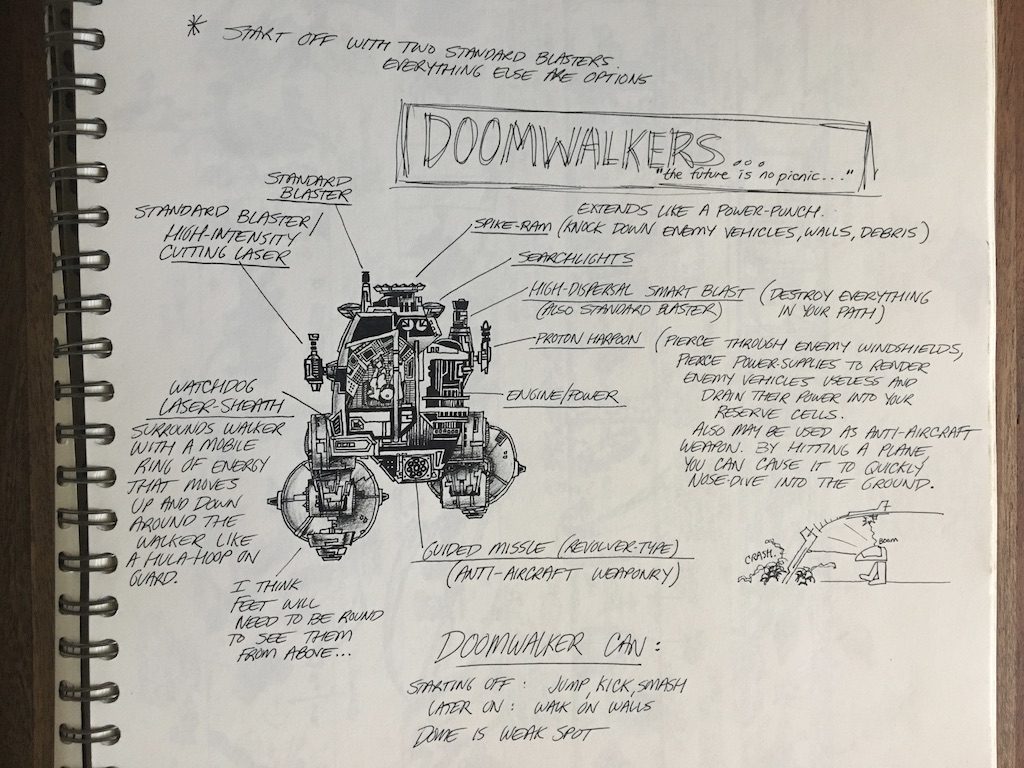 * START OFF WITH TWO STANDARD BLASTERS.
EVERYTHING ELSE ARE OPTIONS
DOOMWALKERS...
"the future is no picnic..."
STANDARD
BLASTER
STANDARD BLASTER/
HIGH-INTENSITY
CUTTING LASER
EXTENDS LIKE A POWER-PUNCH.
SPIKE-RAM (KNOCK DOWN ENEMY VEHICLES, WALLS, DEBRIS)
SEARCHLIGHTS
HIGH-DISPERSAL SMART BLAST (DESTROY EVERYTHING
(ALSO STANDARD BLASTER) IN YOUR PATH)
PROTON HARPOON (PIERCE THROUGH ENEMY WINDSHIELDS,
PIERCE POWER-SUPPLIES TO RENDER
ENEMY VEHICLES USELESS AND
DRAIN THEIR POWER INTO YOUR
RESERVE CELLS.
ALSO MAY BE USED AS ANTI-AIRCRAFT
WEAPON. BY HITTING A PLANE,
YOU CAN CAUSE IT TO QUICKLY
NOSE-DIVE INTO THE GROUND.
ENGINE/POWER
WATCHDOG
LASER-SHEATH
SURROUNDS WALKER
WITH A MOBILE
RING OF ENERGY
THAT MOVES
UP AND DOWN
AROUND THE
WALKER LIKE
A HULA-HOOP ON
GUARD.
GUIDED MISSLE (REVOLVER-TYPE)
(ANTI-AIRCRAFT WEAPONRY)
CRASH.
BOOM
I THINK
FEET WILL
NEED TO BE ROUND
TO SEE THEM
FROM ABOVE...
DOOMWALKER CAN:
STARTING OFF: JUMP, KICK, SMASH
LATER ON: WALK ON WALLS
DOME IS WEAK SPOT